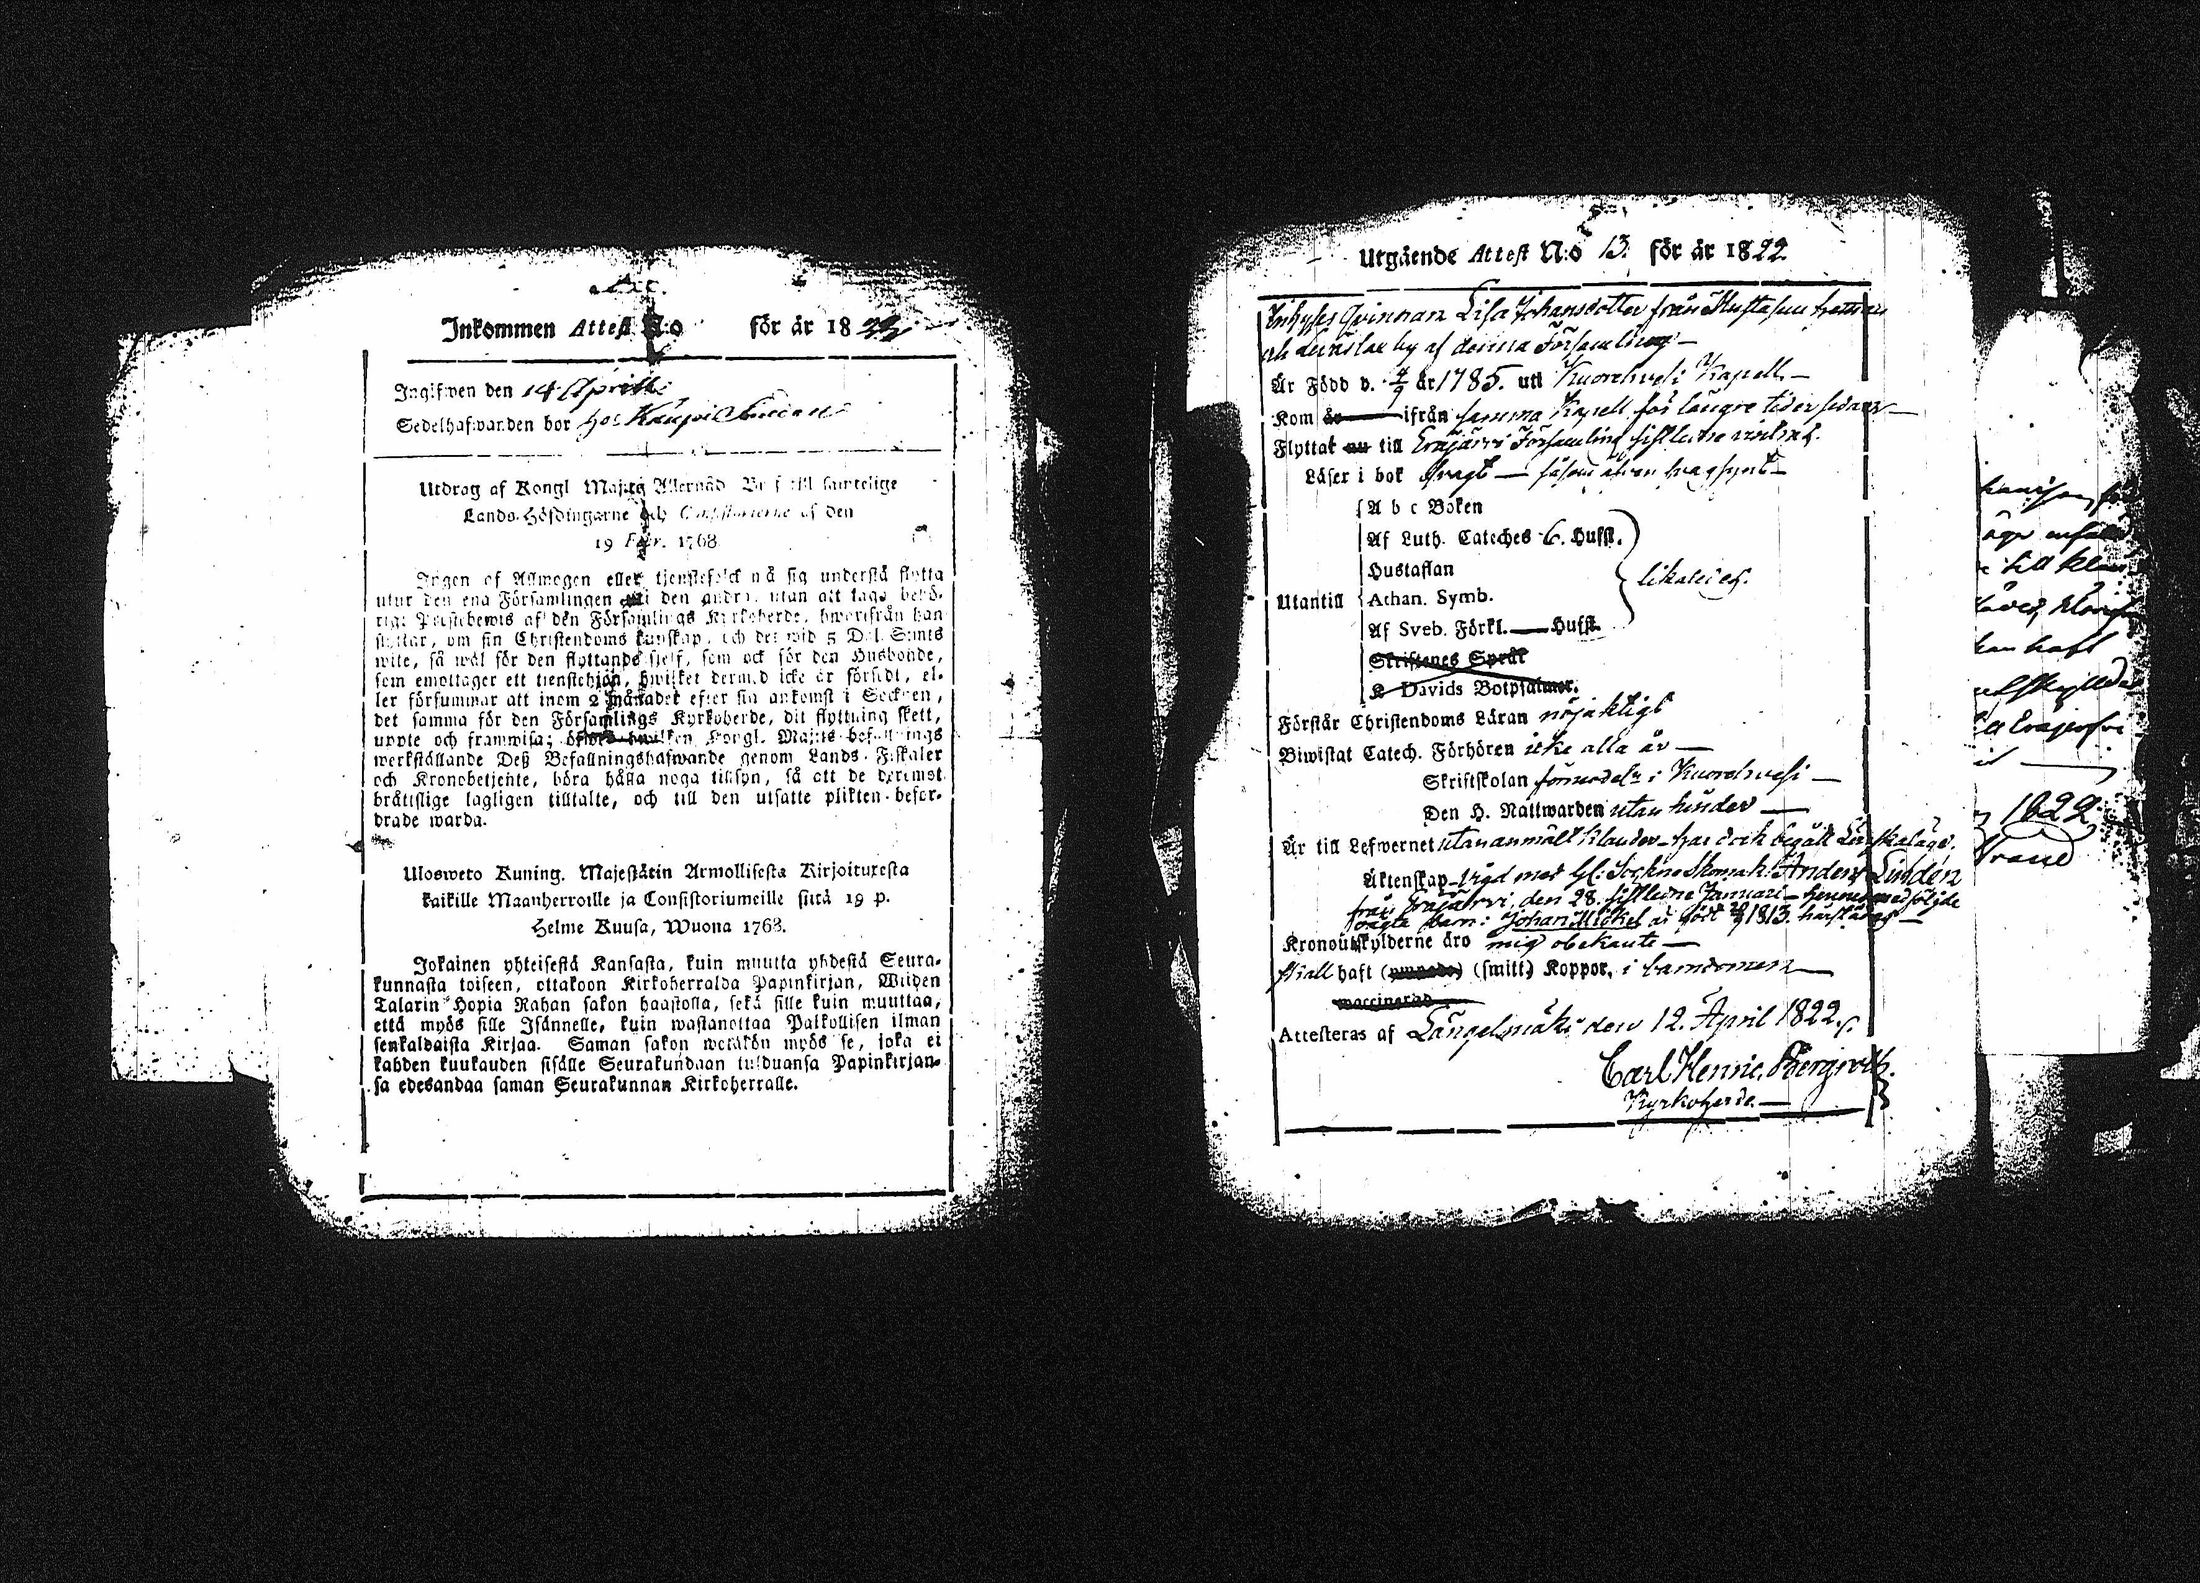 Inkommen Attest N:o för år 1822
Ingifwen den 14 Aprill
Sedelhafwanden bor hos Kauppi
Utdrag af Kongl Maj:ts Allernåd. Bref till samtelige
Lands-Höfdingarne och Consistorierne af den
19 Febr. 1768.
Ingen af Allmogen eller tjenstefolck må sig understå flytta
utur den ena Församlingen till den andra, utan att taga behö-
rigt Prestebewis af den Församlings Kyrkoherde, hworifrån han
flyttar, om sin Christendoms kunskap, och det wid 5 Dal. S:mts
wite, så wäl för den flyttande sjelf, som ock för den Husbonde,
som emottager ett tienstehjon, hwilket dermed icke är försedt, el-
ler försummar att inom 2 månader efter sin ankomst i Socknen,
det samma för den Församlings Kyrkoherde, dit flyttning skett,
upte och framwisa; öfwer hwilken Kongl. Maj:ts befallnings
werkställande Deß Befallningshafwande genom Lands-Fiskaler
och Kronobetjente, böra hålla noga tillsyn, så att de deremot
bråttslige lagligen tilltalte, och till den utsatte plikten befor-
drade warda.
Ulosweto Kuning. Majestätin Armollisesta Kirjoituxesta
kaikille Maanherroille ja Consistoriumeille siitä 19 p.
Helme Kuusa, Wuona 1768.
Jokainen yhteisestä Kansasta, kuin muutta yhdestä Seura-
kunnasta toiseen, ottakoon Kirkoherralda Papinkirjan, Wiiden
Talarin Hopia Rahan sakon haastolla, sekä sille kuin muuttaa,
että myös sille Isännelle, kuin wastanottaa Palkollisen ilman
senkaldaista Kirjaa. Saman sakon wetäkön myös se, joka ei
kahden kuukauden sisälle Seurakundaan tulduansa Papinkirjan-
sa edesandaa saman Seurakunnan Kirkoherralle.
Utgående Attest N:o 13. för år 1822
Inhyses Qvinnan Lisa Johansdotter från
by af denna Församling
Är Född d. 4/9 år 1785. uti Kuorehvesi Kapell
Kom år ifrån samma Kapell för längre tider sedan
Flyttat nu till Eräjärvi Församling sistledne
Läser i bok svagt — såsom äfven svagsynt
A b c Boken
Af Luth. Cateches 6. Hufst.
Hustaflan
Utantill Athan. Symb. likaledes.
Af Sveb. Förkl. — Hufst.
Skriftenes Språk
K Davids Botpsalmer.
Förstår Christendoms Läran nöjaktigt
Biwistat Catech. Förhören icke alla år
Skriftskolan förmodel: i Kuorehvesi
Den H. Nattwarden utan hinder
Är till Lefwernet utan anmält klander har dock begått Lönskaläge.
Äktenskap vigd med Gl: Sockne Skomak: Anders Lindén
från Eräjärvi, den 28. sistledne Januari — henne medfölgde
oägta barn: Johan Mickel är född 1813.
Kronoutskylderne äro mig obekante
skall haft (ympade) (smitt) Koppor, i barndomen
waccinerad
Attesteras af Längelmäki den 12. April 1822.
Carl Henric Bergroth.
Kyrkoherde.
till
haft
1822